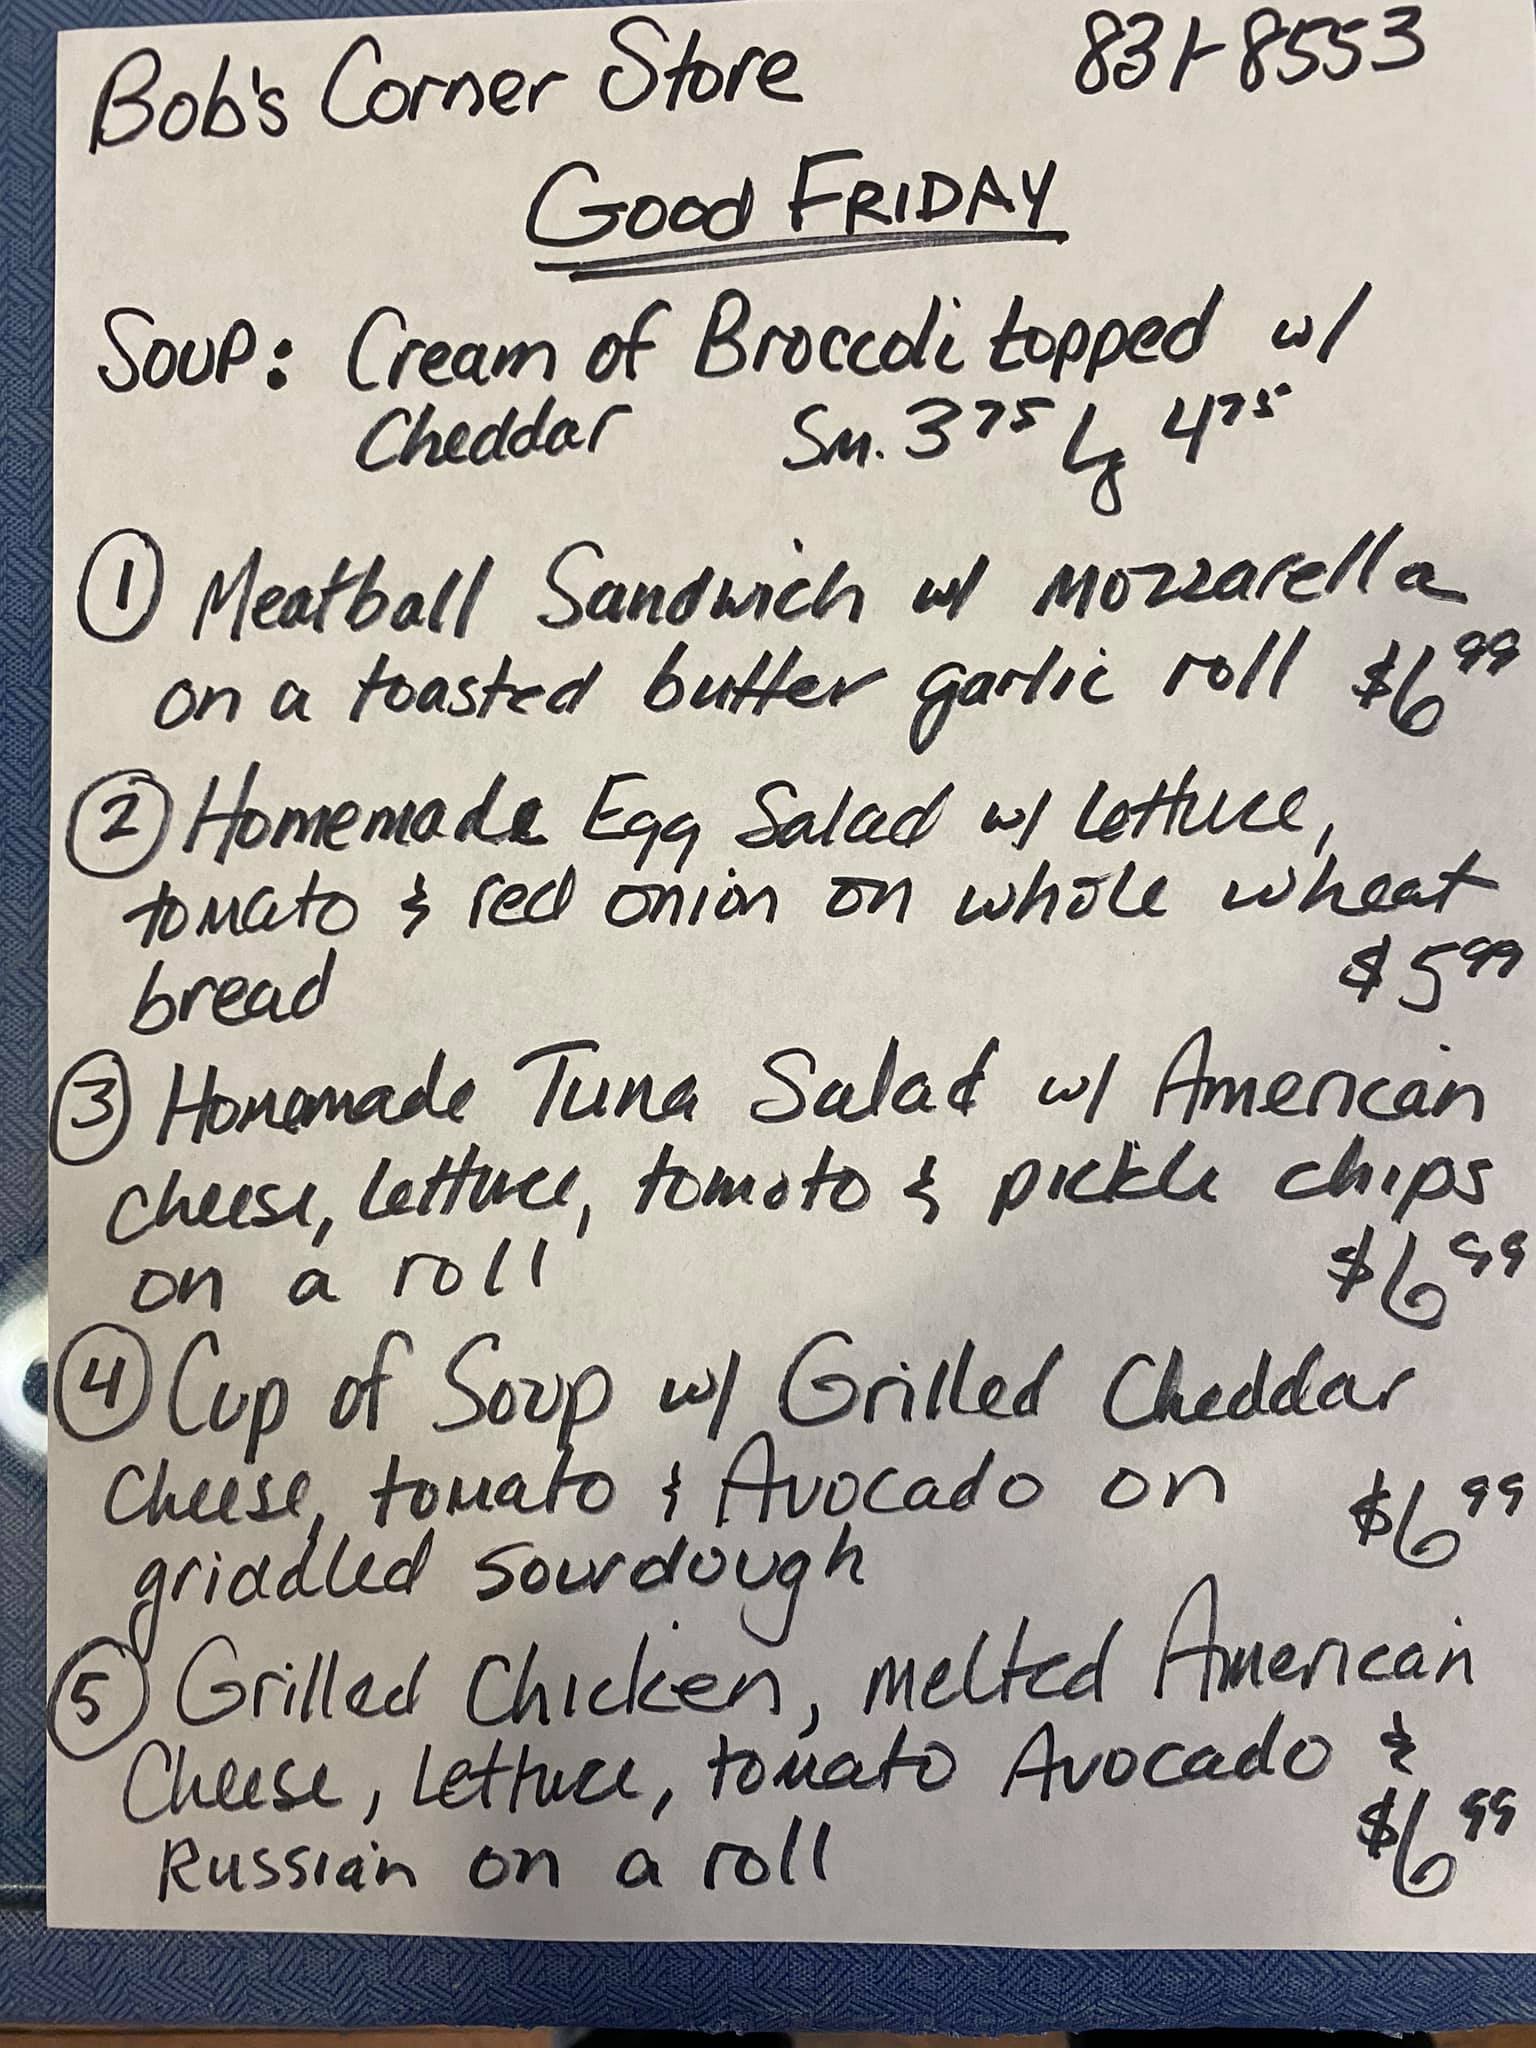 Bob's Corner Store 831-8553
Good FRIDAY
Soup: Cream of Broccoli topped w/
Cheddar Sm. 3.75 Lg 4.75
1 Meatball Sandwich w/ Mozzarella
on a toasted butter garlic roll $6.99
2 Homemade Egg Salad w/ lettuce,
tomato & red onion on whole wheat
bread $5.99
3 Homemade Tuna Salad w/ American
cheese, lettuce, tomato & pickle chips
on a roll $6.99
4 Cup of Soup w/ Grilled Cheddar
Cheese, tomato & Avocado on $6.99
griddled sourdough
5 Grilled Chicken, melted American
Cheese, Lettuce, tomato Avocado &
Russian on a roll $6.99